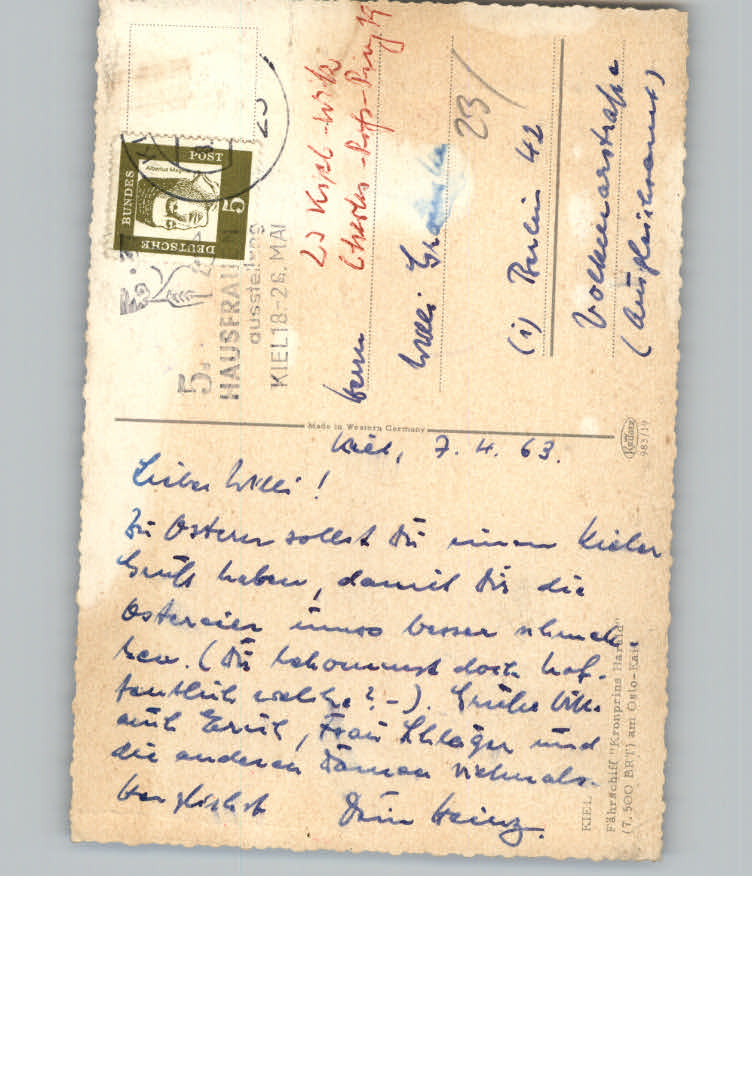 Kiel, 7. 4. 63.
Lieber Willi!
Zu Ostern sollst Du einen Kieler
Gruß haben, damit Dir die
Ostereier umso besser schmek-
ken. (Du bekommst doch hof-
fentlich welche? -). Grüße bitte
auch Erich, Frau Schläger und
die anderen Damen vielmals.
Herzlichst Dein Heinz.
Herrn
Willi
(1) Berlin 42
Volkmarstraße
(Ausgleichsamt)
23 Kiel-Wik
19
23/
DEUTSCHE
BUNDES
POST
5
Albertus Magnus
5.
HAUSFRAU
ausstellung
KIEL 18-26. MAI
Made in Western Germany
Krüger
983/19
KIEL
Fährschiff "Kronprins Harald"
(7.500 BRT) am Oslo-Kai